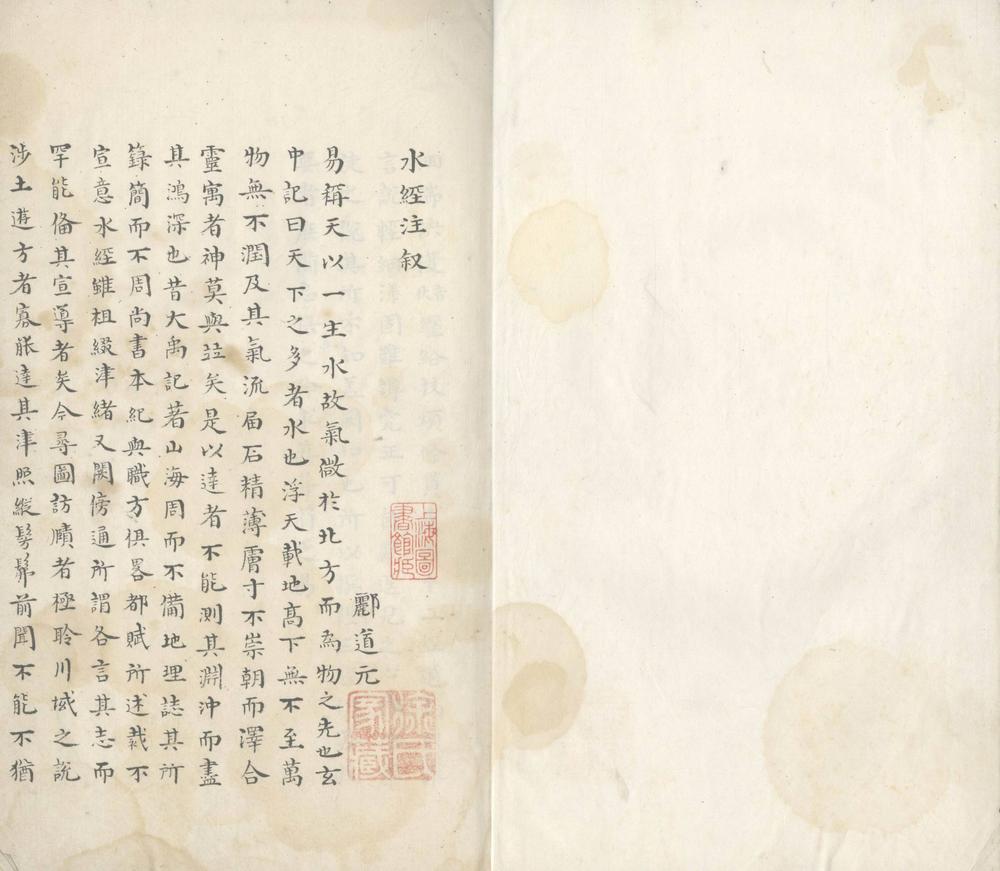 水經注叙
酈道元
易稱天以一生水故氣微於北方而為物之先也玄
中記曰天下之多者水也浮天載地高下無不至萬
物無不潤及其氣流届石精薄膚寸不崇朝而澤合
靈寓者神莫與竝矣是以達者不能測其淵沖而盡
其鴻深也昔大禹記著山海周而不備地理誌其所
錄簡而不周尚書本紀與職方俱畧都賦所述裁不
宣意水經雖粗綴津緒又闕傍通所謂各言其志而
罕能俻其宣導者矣今尋圖訪賾者極聆川域之說
涉土遊方者寡能達其津照縱髣髴前聞不能不猶
上海圖書館藏